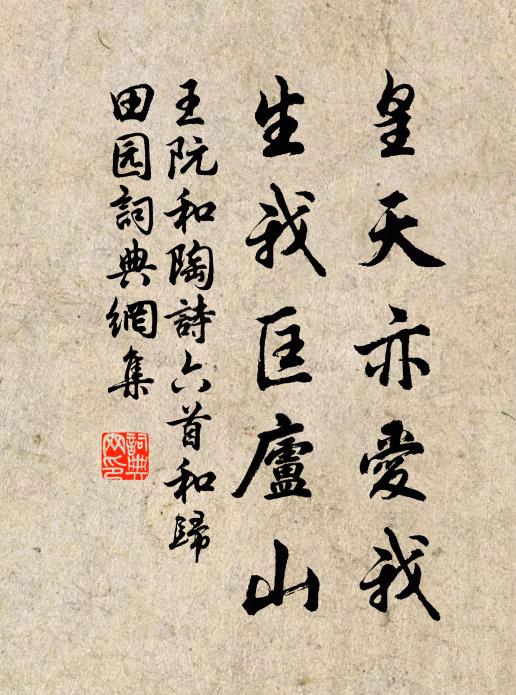 皇天亦愛我
生我匡廬山
王阮和陶詩六首和歸
田园詞典網集
詞典
网印